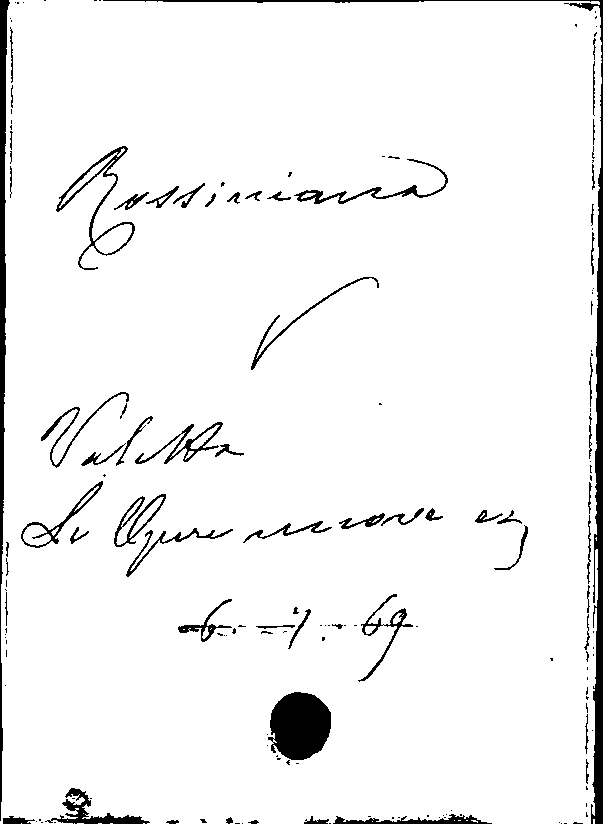 Rossiniana
V
Valetta
Le Opere nuove
6. 7. 69